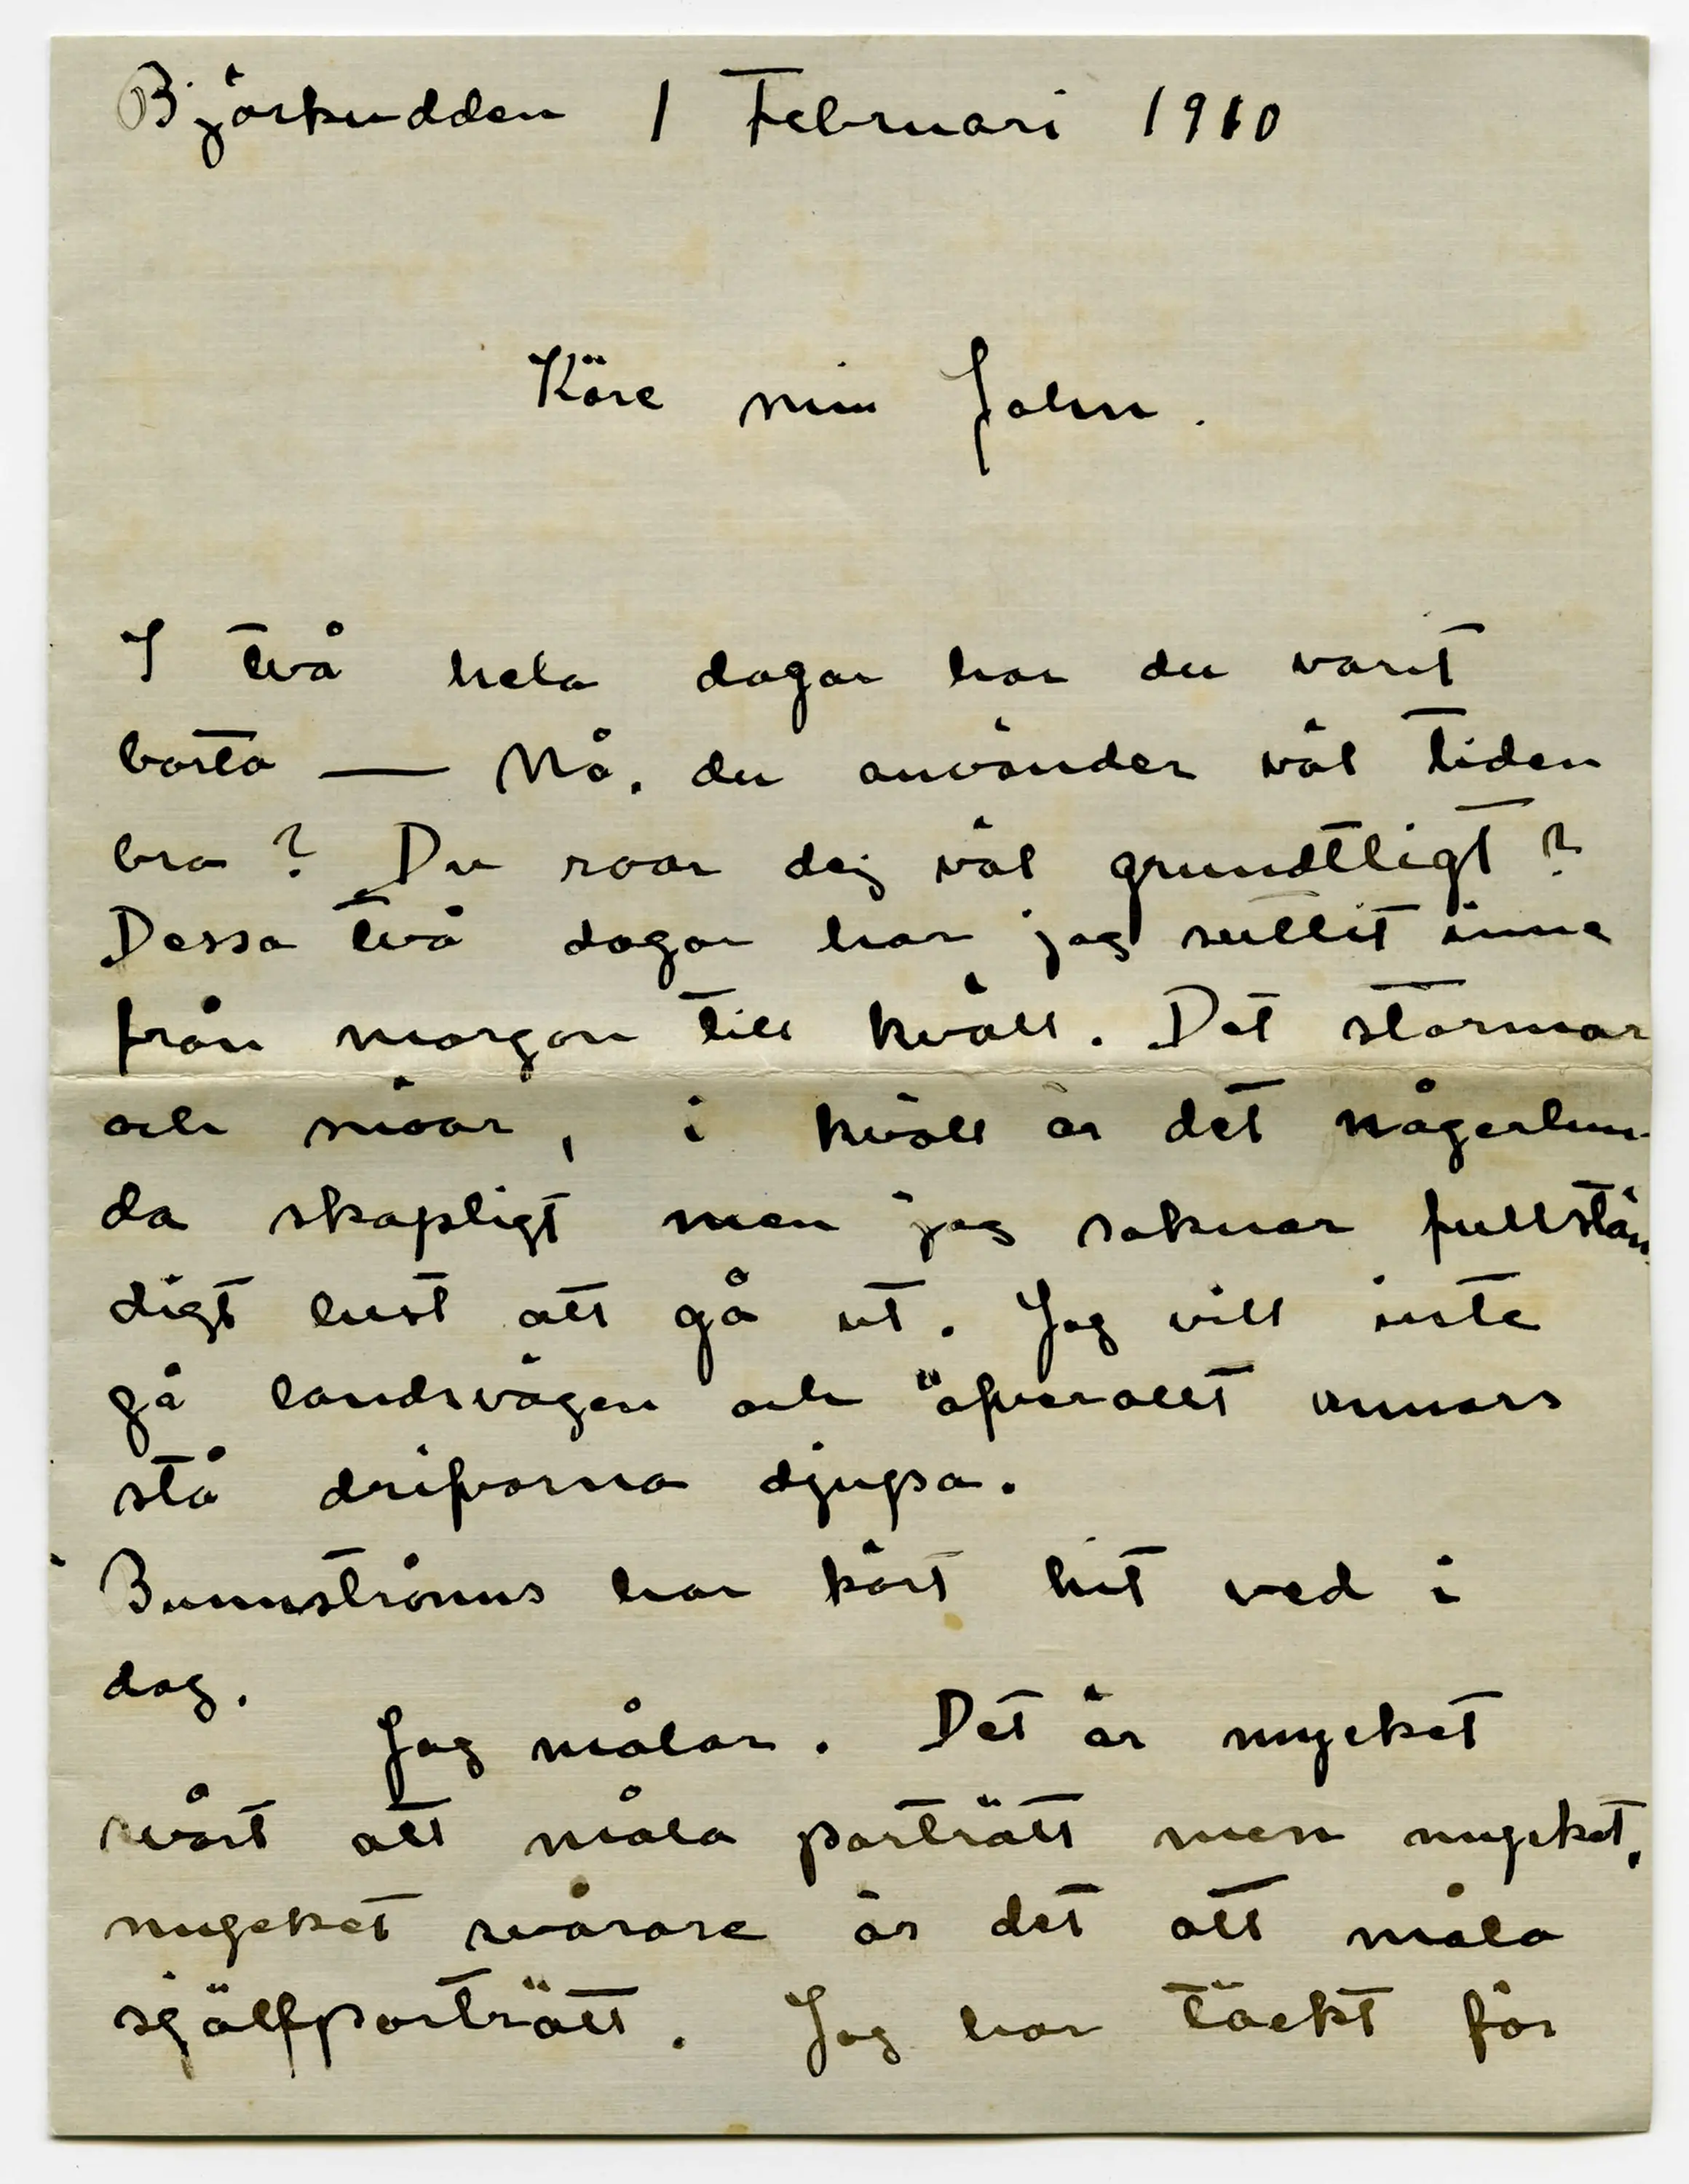 Björkudden 1 Februari 1910
Käre min John.
I två hela dagar har du varit
borta — Nå, du använder väl tiden
bra? Du roar dej väl grundtligt?
Dessa två dagar har jag suttit inne
från morgon till kväll. Det stormar
och snöar, i kväll är det någerlun-
da skapligt men jag saknar fullstän
digt lust att gå ut. Jag vill inte
gå landsvägen och öfverallt annars
stå drifvorna djupa.
Brunnströms har kört hit ved i
dag.
Jag målar. Det är mycket
svårt att måla porträtt men mycket,
mycket svårare är det att måla
självporträtt. Jag har täckt för